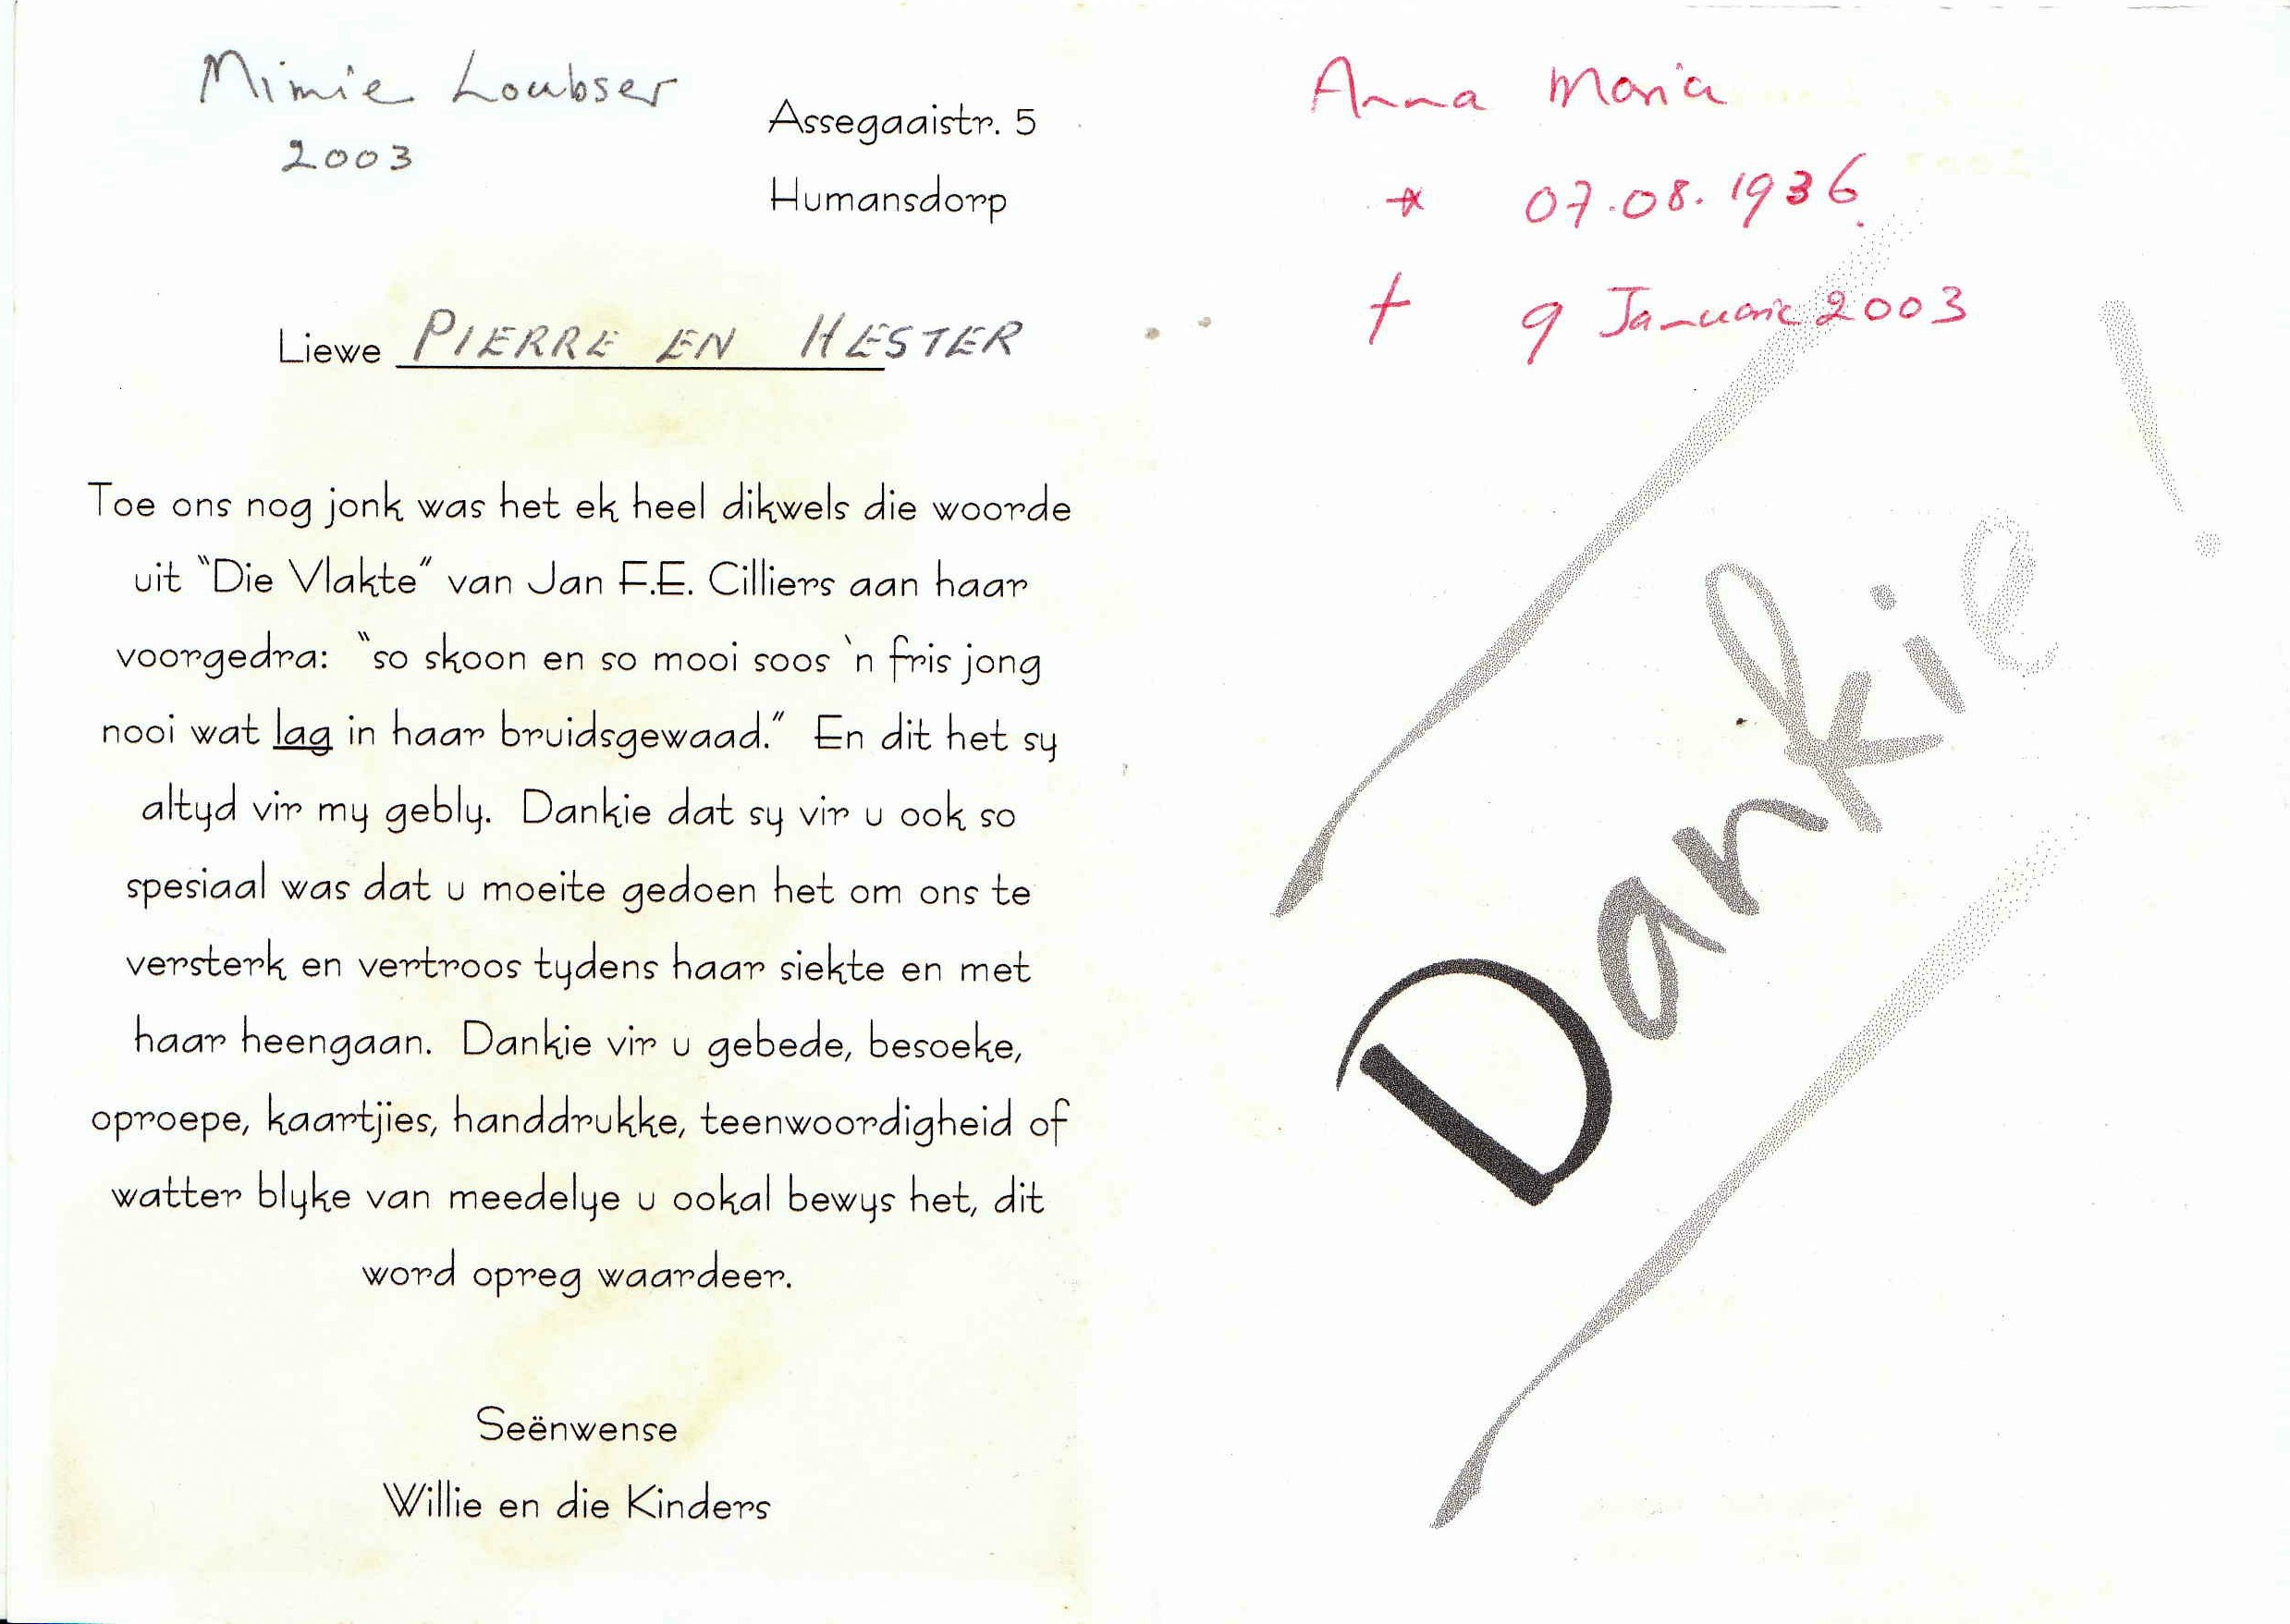 Mimie Loubser
2003
Assegaaistr. 5
Humansdorp
Liewe PIERRE EN HESTER
Toe ons nog jonk was het ek heel dikwels die woorde
uit "Die Vlakte" van Jan F.E. Cilliers aan haar
voorgedra: "so skoon en so mooi soos 'n fris jong
nooi wat lag in haar bruidsgewaad." En dit het sy
altyd vir my gebly. Dankie dat sy vir u ook so
spesiaal was dat u moeite gedoen het om ons te
versterk en vertroos tydens haar siekte en met
haar heengaan. Dankie vir u gebede, besoeke,
oproepe, kaartjies, handdrukke, teenwoordigheid of
watter blyke van meedelye u ookal bewys het, dit
word opreg waardeer.
Seënwense
Willie en die Kinders
Anna Maria
* 07.08.1936
† 9 Januarie 2003
Dankie!